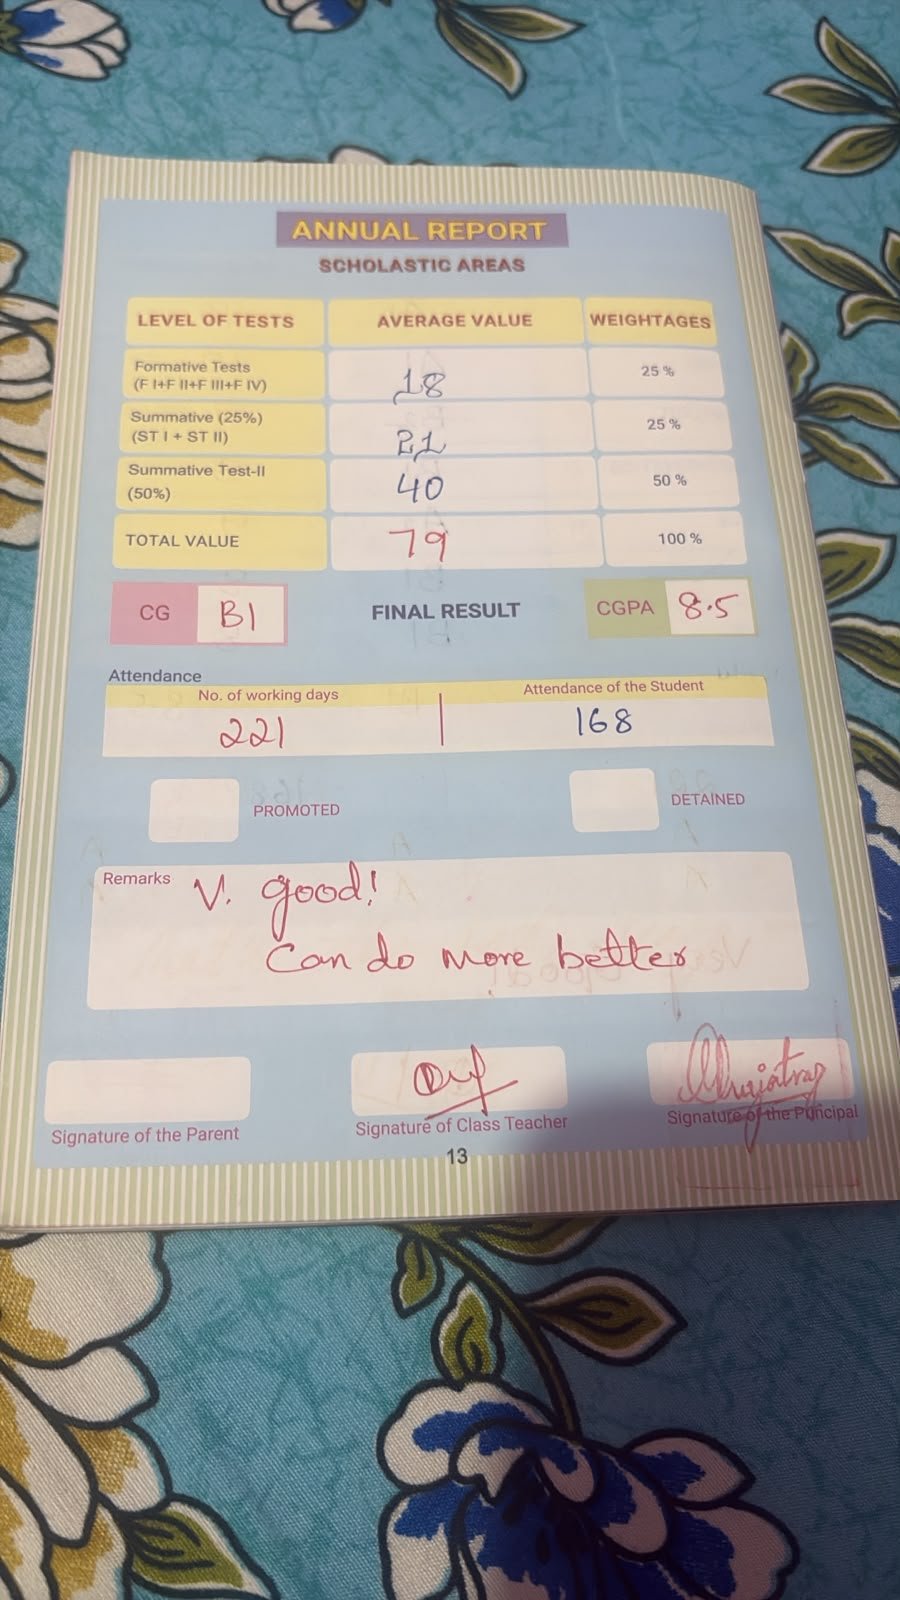 ANNUAL REPORT
SCHOLASTIC AREAS
LEVEL OF TESTS AVERAGE VALUE WEIGHTAGES
Formative Tests
(F I+F II+F III+F IV) 18 25 %
Summative (25%)
(ST I + ST II) 21 25 %
Summative Test-II
(50%) 40 50 %
TOTAL VALUE 79 100 %
CG B1 FINAL RESULT CGPA 8.5
Attendance
No. of working days Attendance of the Student
221 168
PROMOTED DETAINED
Remarks V. good!
Can do more better
Signature of the Parent Signature of Class Teacher Signature of the Principal
13